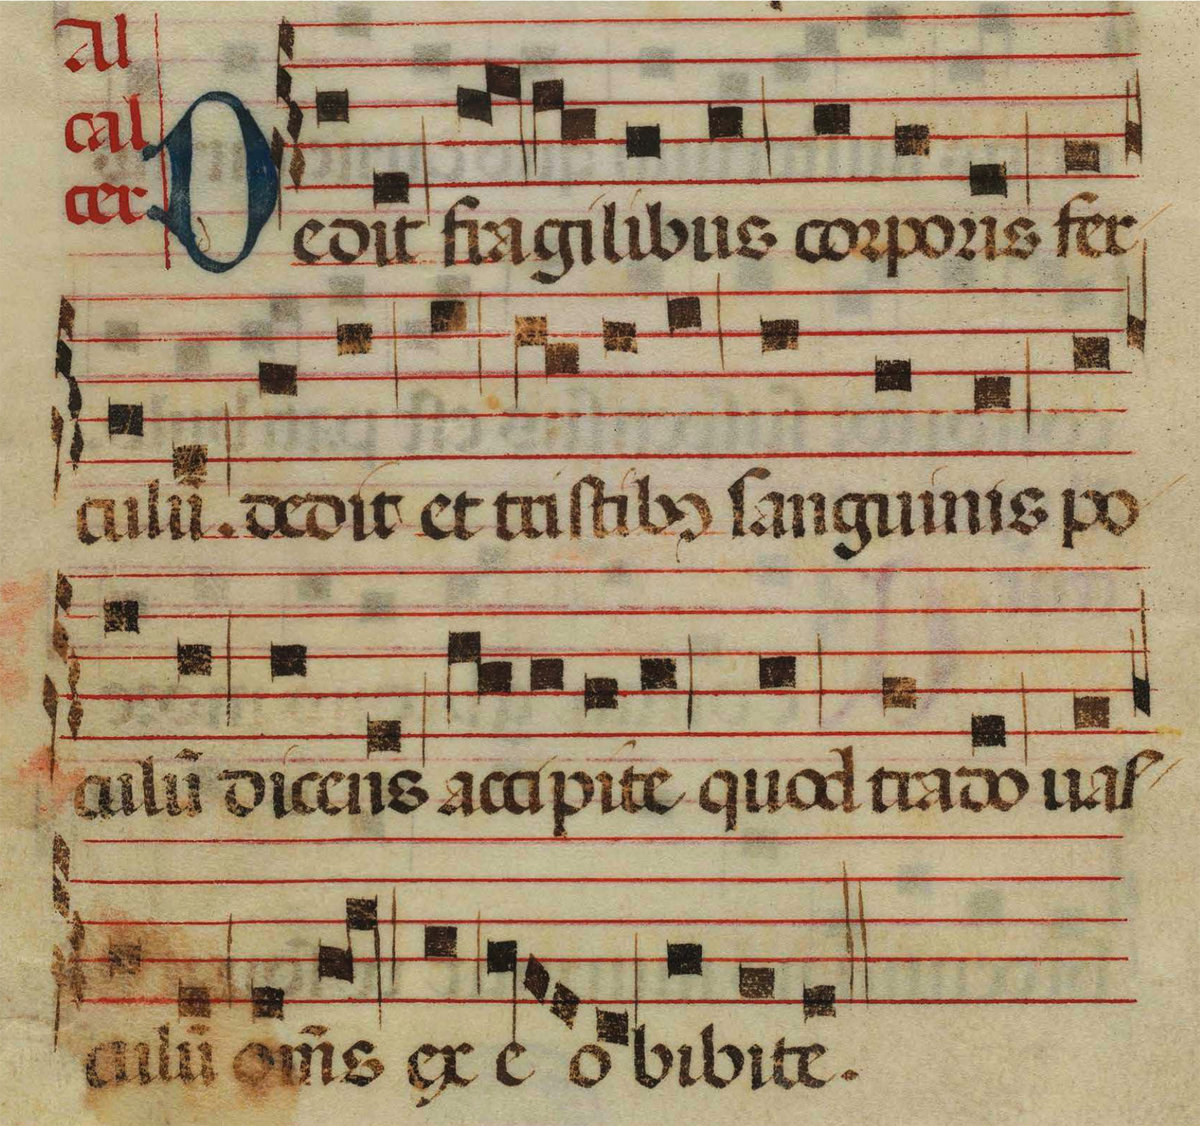 Al
cal
cer
Dedit fragilibus corporis fer
culū. dedit et tristibꝫ sanguinis po
culū dicens accipite quod trado uas
culū om̄s ex e o bibite.